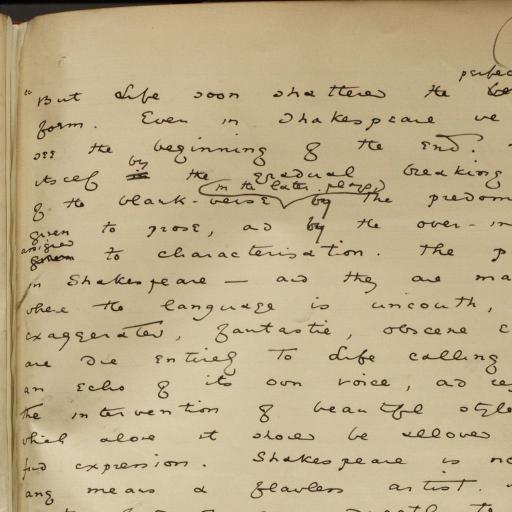 perfec
"But Life soon shattered the
form. Even in Shakespeare we
see the beginning of the end.
itself by the gradual breaking
(in the later plays)
of the blank-verse by the predom
given to prose, and by the over-im
assigned
to characterisation. The p
in Shakespeare — and they are ma
where the language is uncouth,
exaggerated, fantastic, obscene e
are due entirely to Life calling
an echo of its own voice, and rej
the intervention of beautiful style
which alone it should be allowed
find expression. Shakespeare is no
any means a flawless artist.